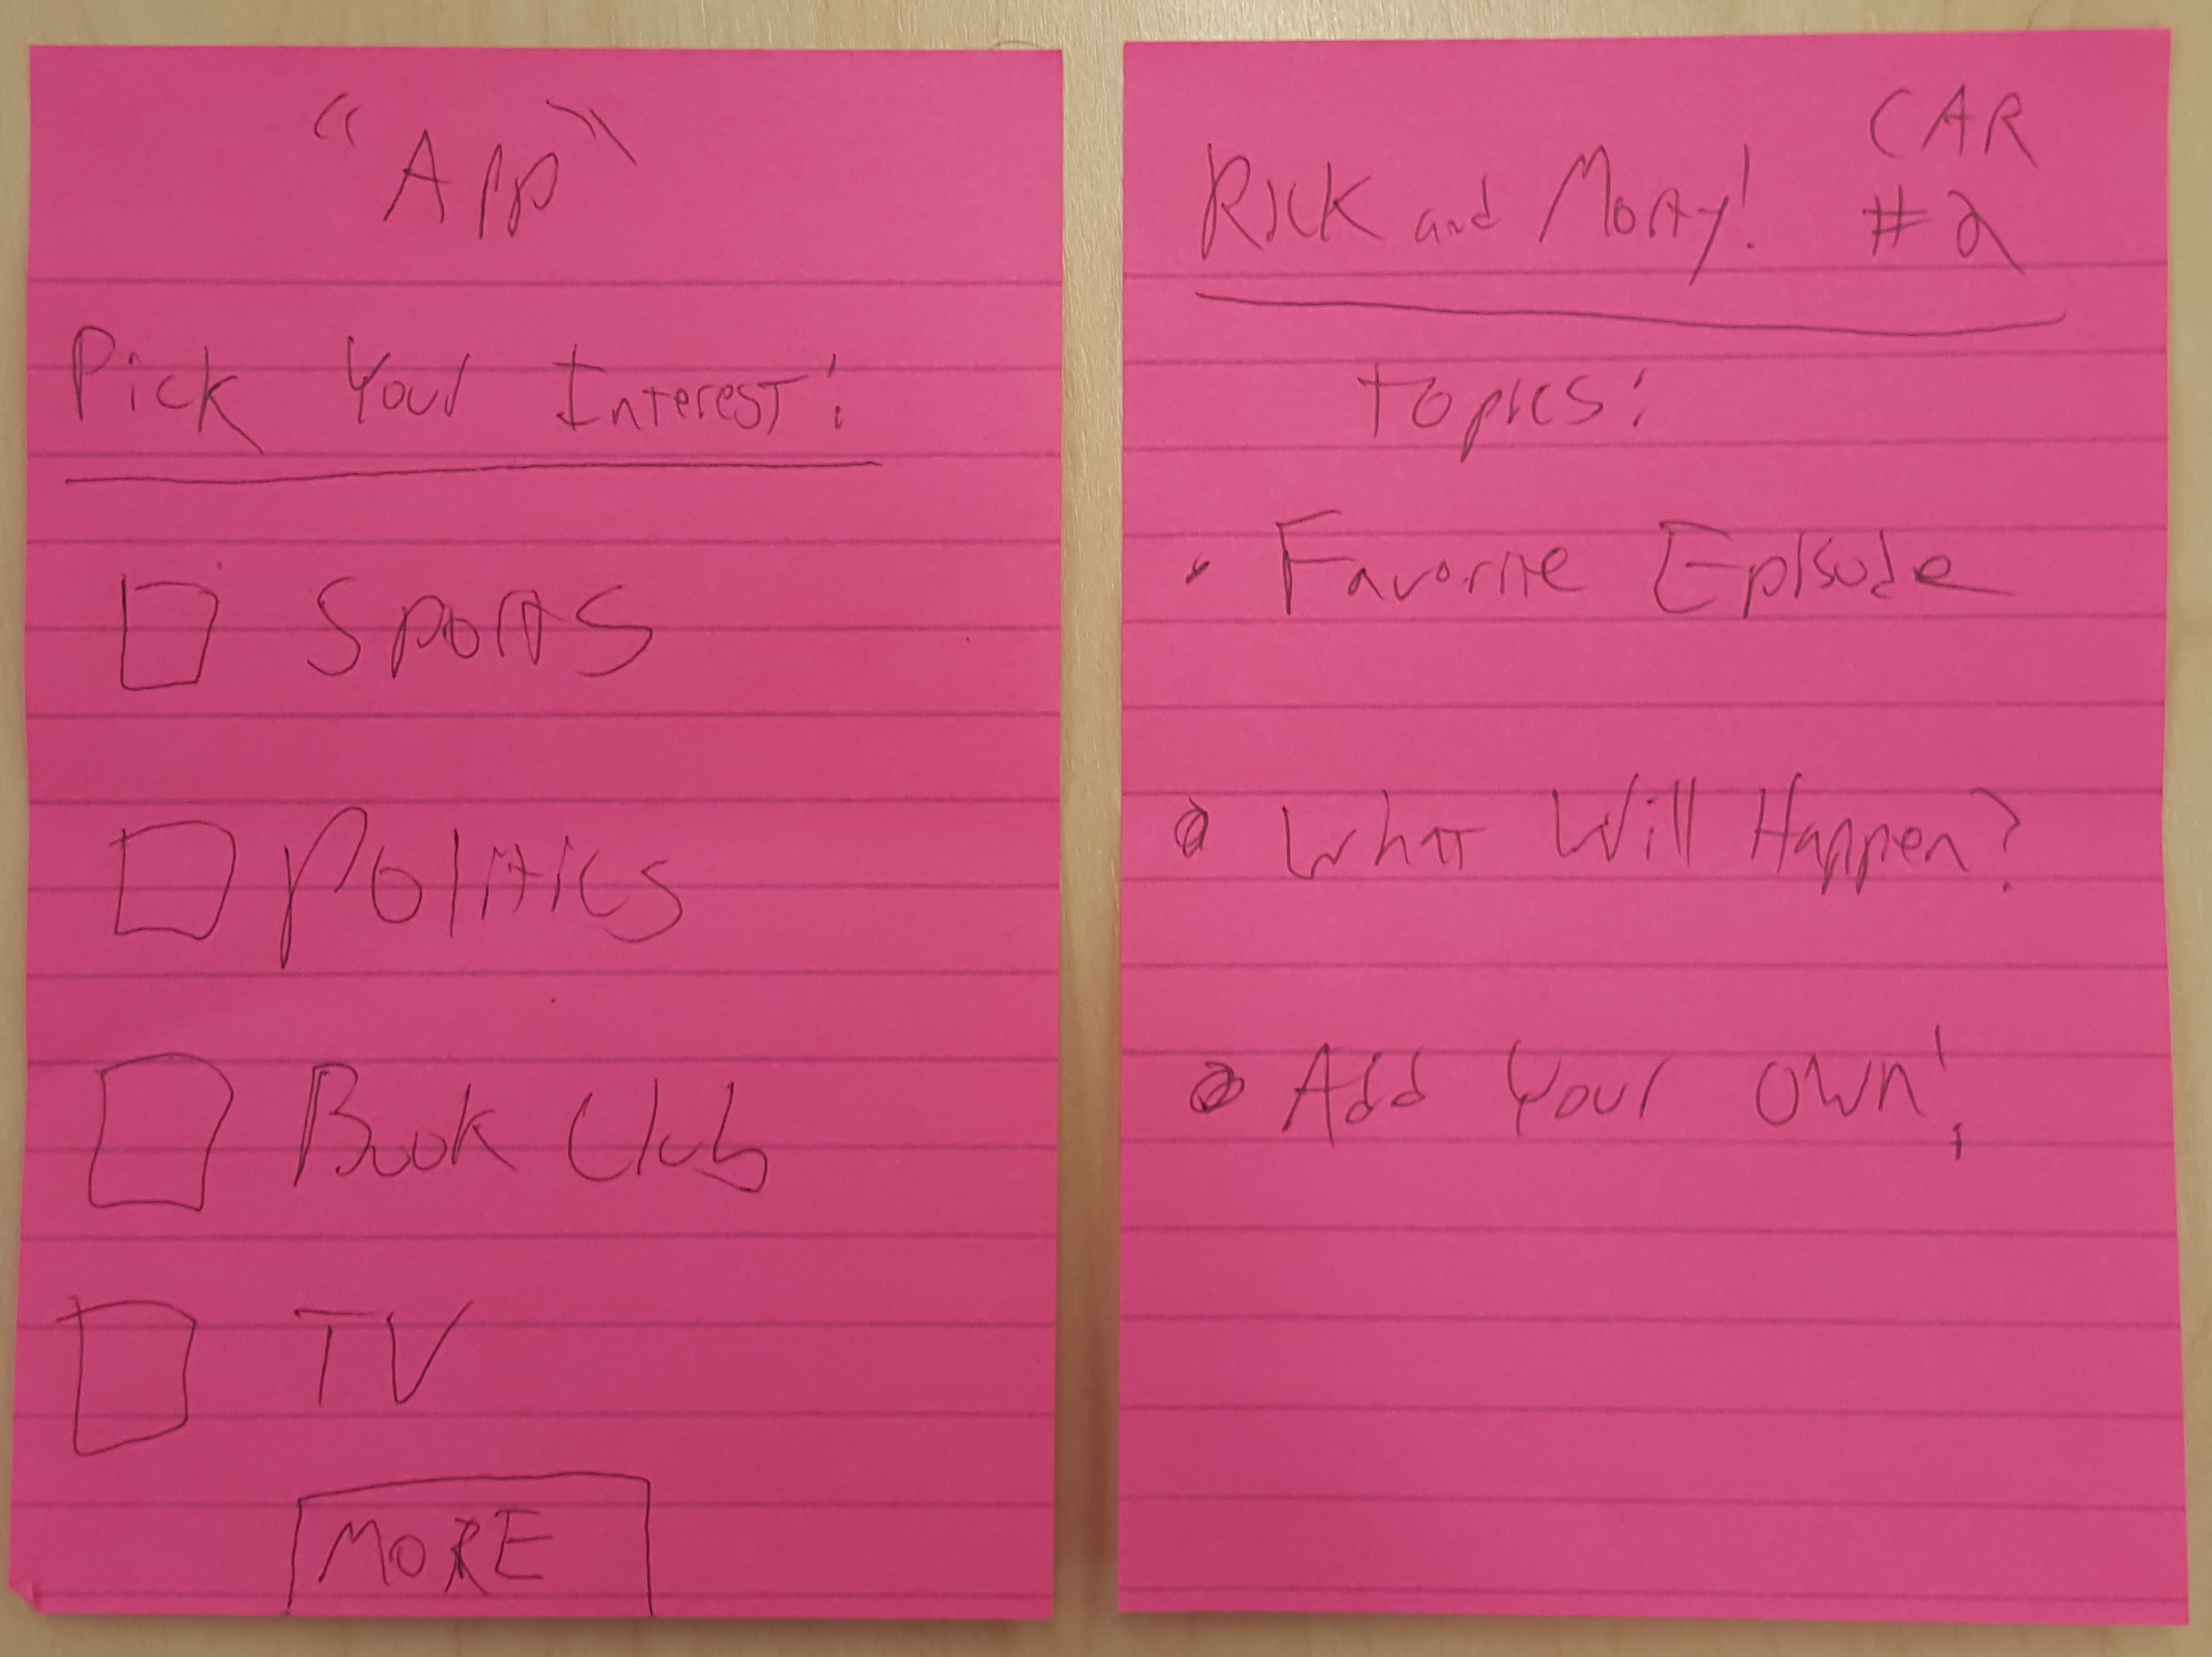 "App"
Pick Your Interest:
Sports
Politics
Book Club
TV
MORE
Rick and Morty! CAR
#2
Topics:
• Favorite Episode
• What Will Happen?
• Add Your Own!